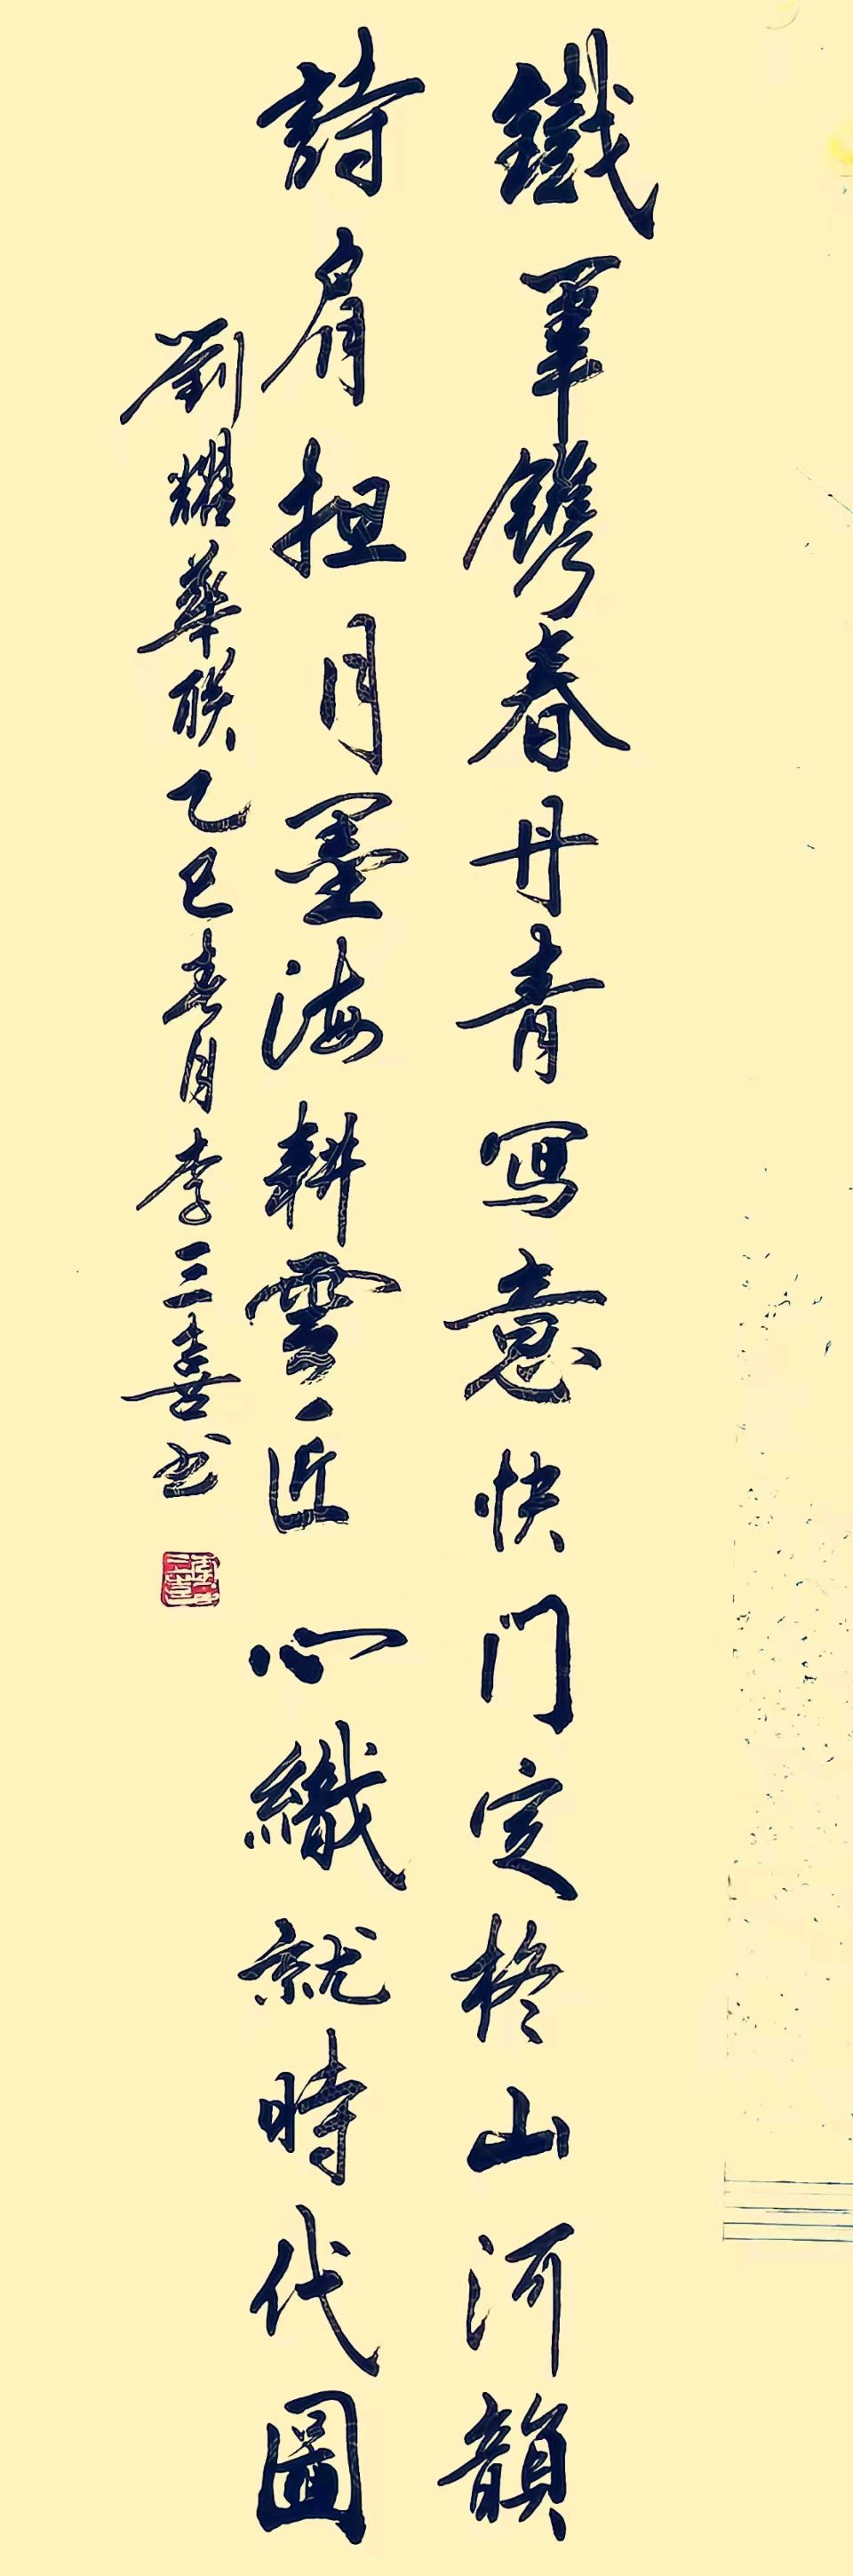 鐵筆鐫春丹青寫意快门定格山河韻
詩肩担月墨海耕雲匠心織就時代圖
劉耀華联乙巳春月李三喜书